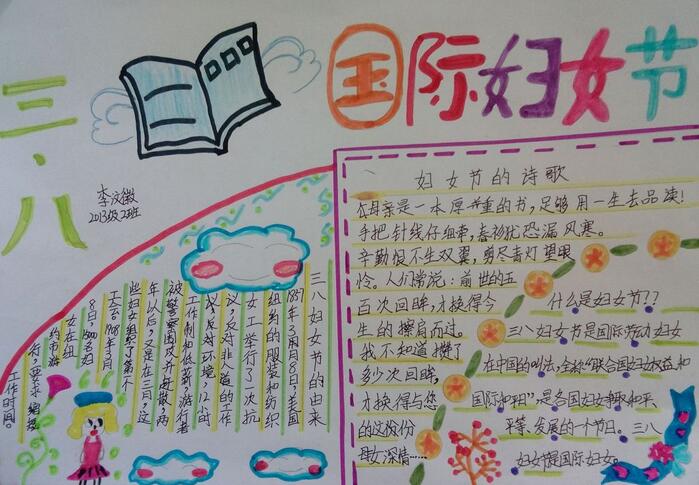 三·八
国际妇女节
2013级2班
三八妇女节的由来
1857年3月8日,美国
纽约的服装和纺织
女工举行了一次抗
议,反对非人道的工作
反对环境,12小时
工作制和低薪,游行者
被警察围攻并赶散,两
年以后,又是在三月,这
些妇女组织了第一个
工会,1908年3月
8日,15000名妇
女在纽
约市游
行,要求缩短
工作时间。
妇女节的诗歌
母亲是一本厚重的书,足够用一生去品读!
手把针线仔细牵,春衫犹恐漏风寒。
辛勤恨不生双翼,剪尽青灯望眼
人们常说:前世的五
百次回眸,才换得今
生的擦肩而过。
我不知道攒了
多少次回眸,
才换得与您
的这份
母女深情……
什么是妇女节??
三八妇女节是国际劳动妇女
在中国的叫法,全称"联合国妇女权益和
国际和平",是各国妇女争取和平、
平等、发展的一个节日。三八
妇女节是国际妇女。